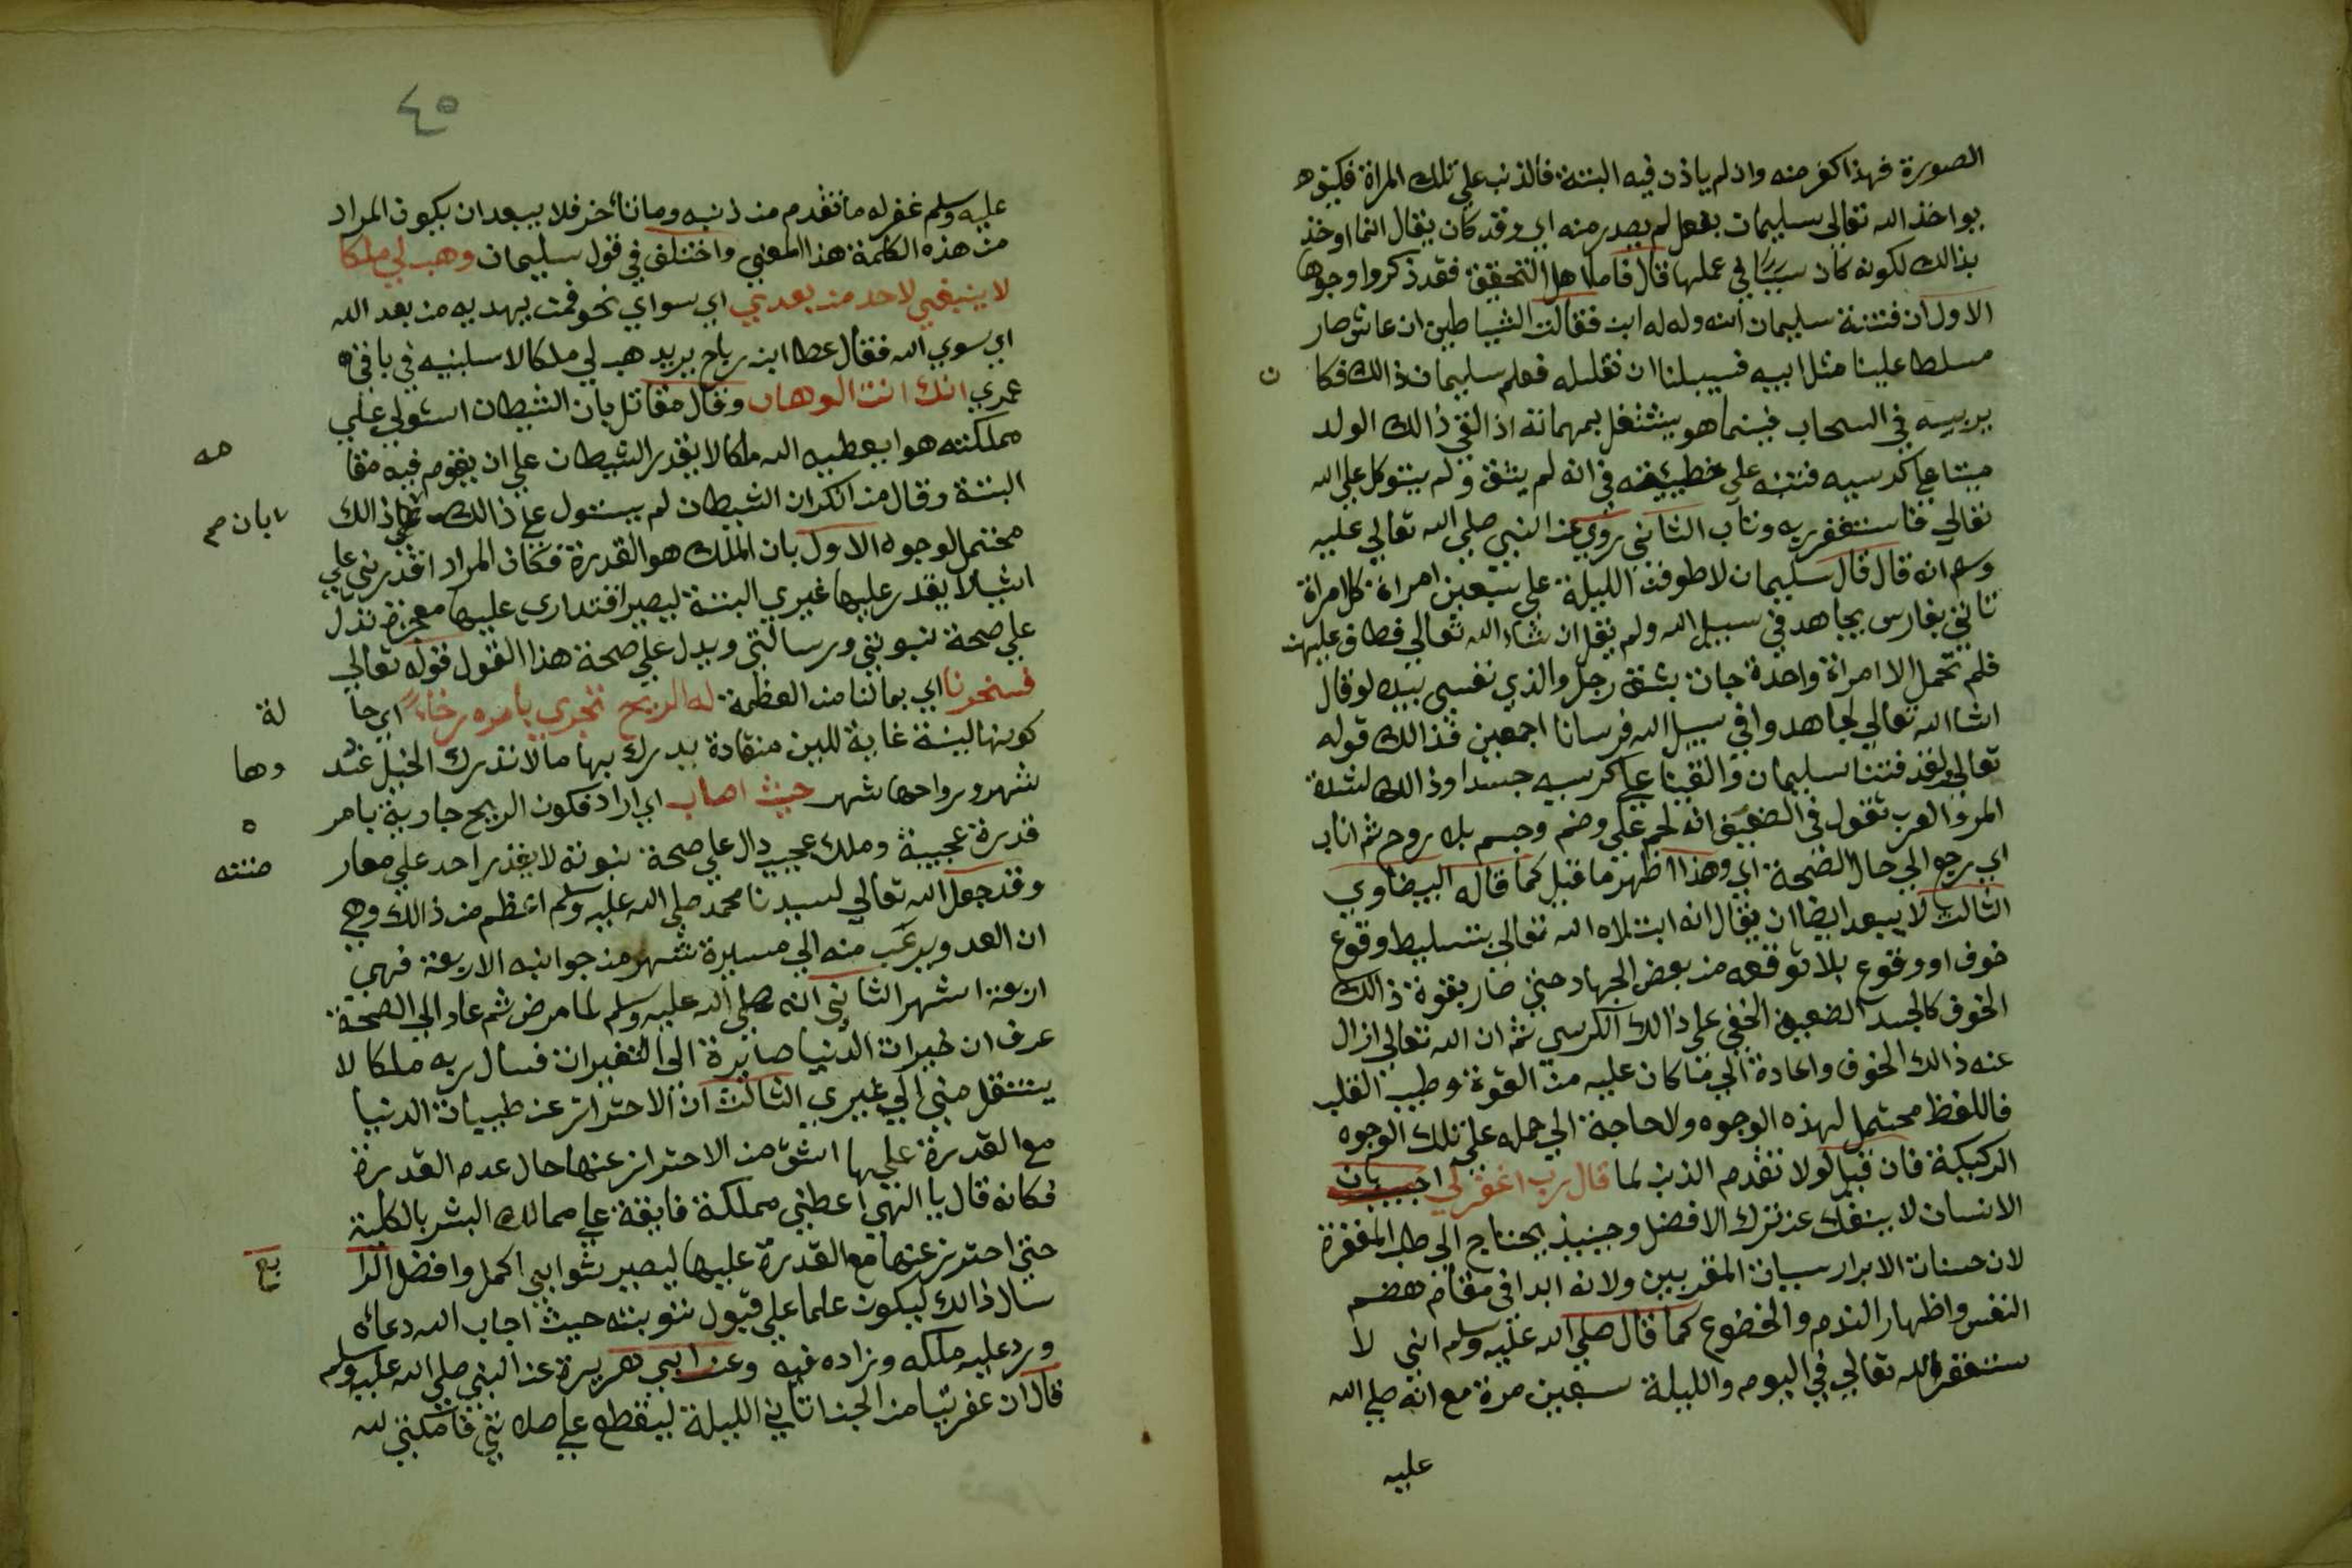 الصورة فهذا كفر منه وان لم ياذن فيه البتة فالذنب علي تلك المراة فكيف
يواخذ الله تعالى سليمان بفعل لم يصدر منه اي وقد كان يقال انما اوخذ
بذالك لكونه كان سببا في عملها قال فاما اهل التحقيق فقد ذكروا وجوها
الاول ان فتنة سليمان انه ولد له ابن فقالت الشياطين ان عاش صار
مسلطا علينا مثل ابيه فسبيلنا ان نقتله فعلم سليمان ذالك فكا ن
يربيه في السحاب فبينما هو يشتغل بمهماته اذ القي ذالك الولد
ميتا علي كرسيه فتنبه علي خطيئته في انه لم يثق و لم يتوكل علي الله
تعالي فاستغفر ربه وتاب الثاني روي عن النبي صلي الله تعالي عليه
وسلم انه قال قال سليمان لاطوفن الليلة علي سبعين امراة كل امراة
تاتي بفارس يجاهد في سبيل الله ولم يقل ان شاء الله تعالي فطاف عليهن
فلم تحمل الا امراة واحدة جات بشق رجل والذي نفسي بيده لو قال
انشا الله تعالي لجاهدوا في سبيل الله فرسانا اجمعين فذالك قوله
تعالي ولقد فتنا سليمان والقينا علي كرسيه جسدا وذالك لشدة
المرض والعرب تقول في الضعيف انه لحم علي وضم وجسم بلا روح ثم اناب
اي رجع الي حال الصحة اي وهذا اظهر ما قيل كما قاله البيضاوي
الثالث لا يبعد ايضا ان يقال انه ابتلاه الله تعالي بتسليط وقوع
خوف او وقوع بلا توقعه من بعض الجهاد حتي صار بقوة ذالك
الخوف كالجسد الضعيف الخفي علي ذالك الكرسي ثم ان الله تعالي ازال
عنه ذالك الخوف واعادة الي ما كان عليه من القوة وطيب القلب
فاللفظ محتمل لهذه الوجوه ولا حاجة الي حمله علي تلك الوجوه
الركيكة فان قيل لولا تقدم الذنب لما قال رب اغفر لي اجيب بان
الانسان لا ينفك عن ترك الافضل وحينيذ يحتاج الي طلب المغفرة
لان حسنات الابرار سيات المقربين ولانه ابدا في مقام هضم
النفس واظهار الندم والخضوع كما قال صلي الله عليه وسلم اني لا
ستغفر الله تعالي في اليوم والليلة سبعين مرة مع انه صلي الله
عليه
٤٥
عليه وسلم غفر له ما تقدم من ذنبه وما تاخر فلا يبعد ان يكون المراد
من هذه الكلمة هذا المعني واختلف في قول سليمان وهب لي ملكا
لا ينبغي لاحد من بعدي اي سواي نحو فمن يهديه من بعد الله
اي سوي الله فقال عطا ابن رباح يريد هب لي ملكا لا تسلبنيه في باقي
عمري انك انت الوهاب وقال مقاتل بان الشيطان استولي علي
مملكته هو ا يعطيه الله ملكا لا يقدر الشيطان علي ان يقوم فيه مقا مه
البتة وقال من انكر ان الشيطان لم يستول علي ذالك علي ذالك
بان
محتمل لوجوه الاول بان الملك هو القدرة فكان المراد اقدرني علي
اشيا لا يقدر عليها غيري البتة ليصير اقتداري عليها معجزة تدل
علي صحة نبوتي ورسالتي ويدل علي صحة هذا القول قوله تعالي
فسخرنا اي بمالنا من العظمة له الريح تجري بامره رخاء اي حا لة
كونها لينة غاية للين منقادة يدرك بها ما لا تدرك الخيل غد وها
شهر ورواحها شهر حيث اصاب اي اراد فكون الريح جارية بامر ه
قدرة عجيبة وملك عجيب دال علي صحة نبوته لا يقدر احد علي معار ضته
وقد جعل الله تعالي لسيدنا محمد صلي الله عليه وسلم اعظم من ذالك وهي
ان العدو يرعب منه الي مسيرة شهر من جوانبه الاربعة فهي
اربعة اشهر الثاني انه صلي الله عليه وسلم لما مرض ثم عاد الي الصحة
عرف ان خيرات الدنيا صايرة الي التغيرات فسال ربه ملكا لا
ينتقل مني الي غيري الثالث ان الاحتراز عن طيبات الدنيا
مع القدرة عليها اشق من الاحتراز عنها حال عدم القدرة
فكانه قال يا الهي اعطني مملكة فايقة علي ممالك البشر بالكلية
حتي احترز عنها مع القدرة عليها ليصير ثوابي اكمل وافضل الرا بع
سال ذالك ليكون علما علي قبول توبته حيث اجاب الله دعائه
ورد عليه ملكه وزاده فيه وعن ابي هريرة عن النبي صلي الله عليه وسلم
قال ان عفريتا من الجن اتاني الليلة ليقطع علي صلاتي فامكنني الله